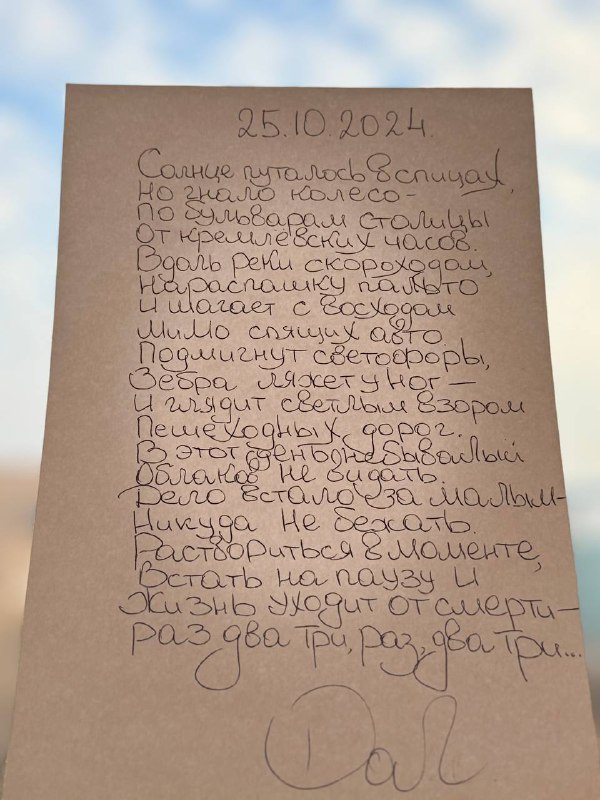 25.10.2024.
Солнце путалось в спицах,
но знало колесо-
По бульварам столицы
От кремлёвских часов.
Вдоль реки скороходом,
Нараспашку пальто
И шагает с восходом
Мимо спящих авто.
Подмигнут светофоры,
Зебра ляжет у ног —
И глядит светлым взором
Пешеходных дорог.
В этот день небывалый
Облаков не видать.
Дело встало за малым-
Никуда не бежать.
Раствориться в моменте,
Встать на паузу и
Жизнь уходит от смерти-
раз два три, раз, два три...